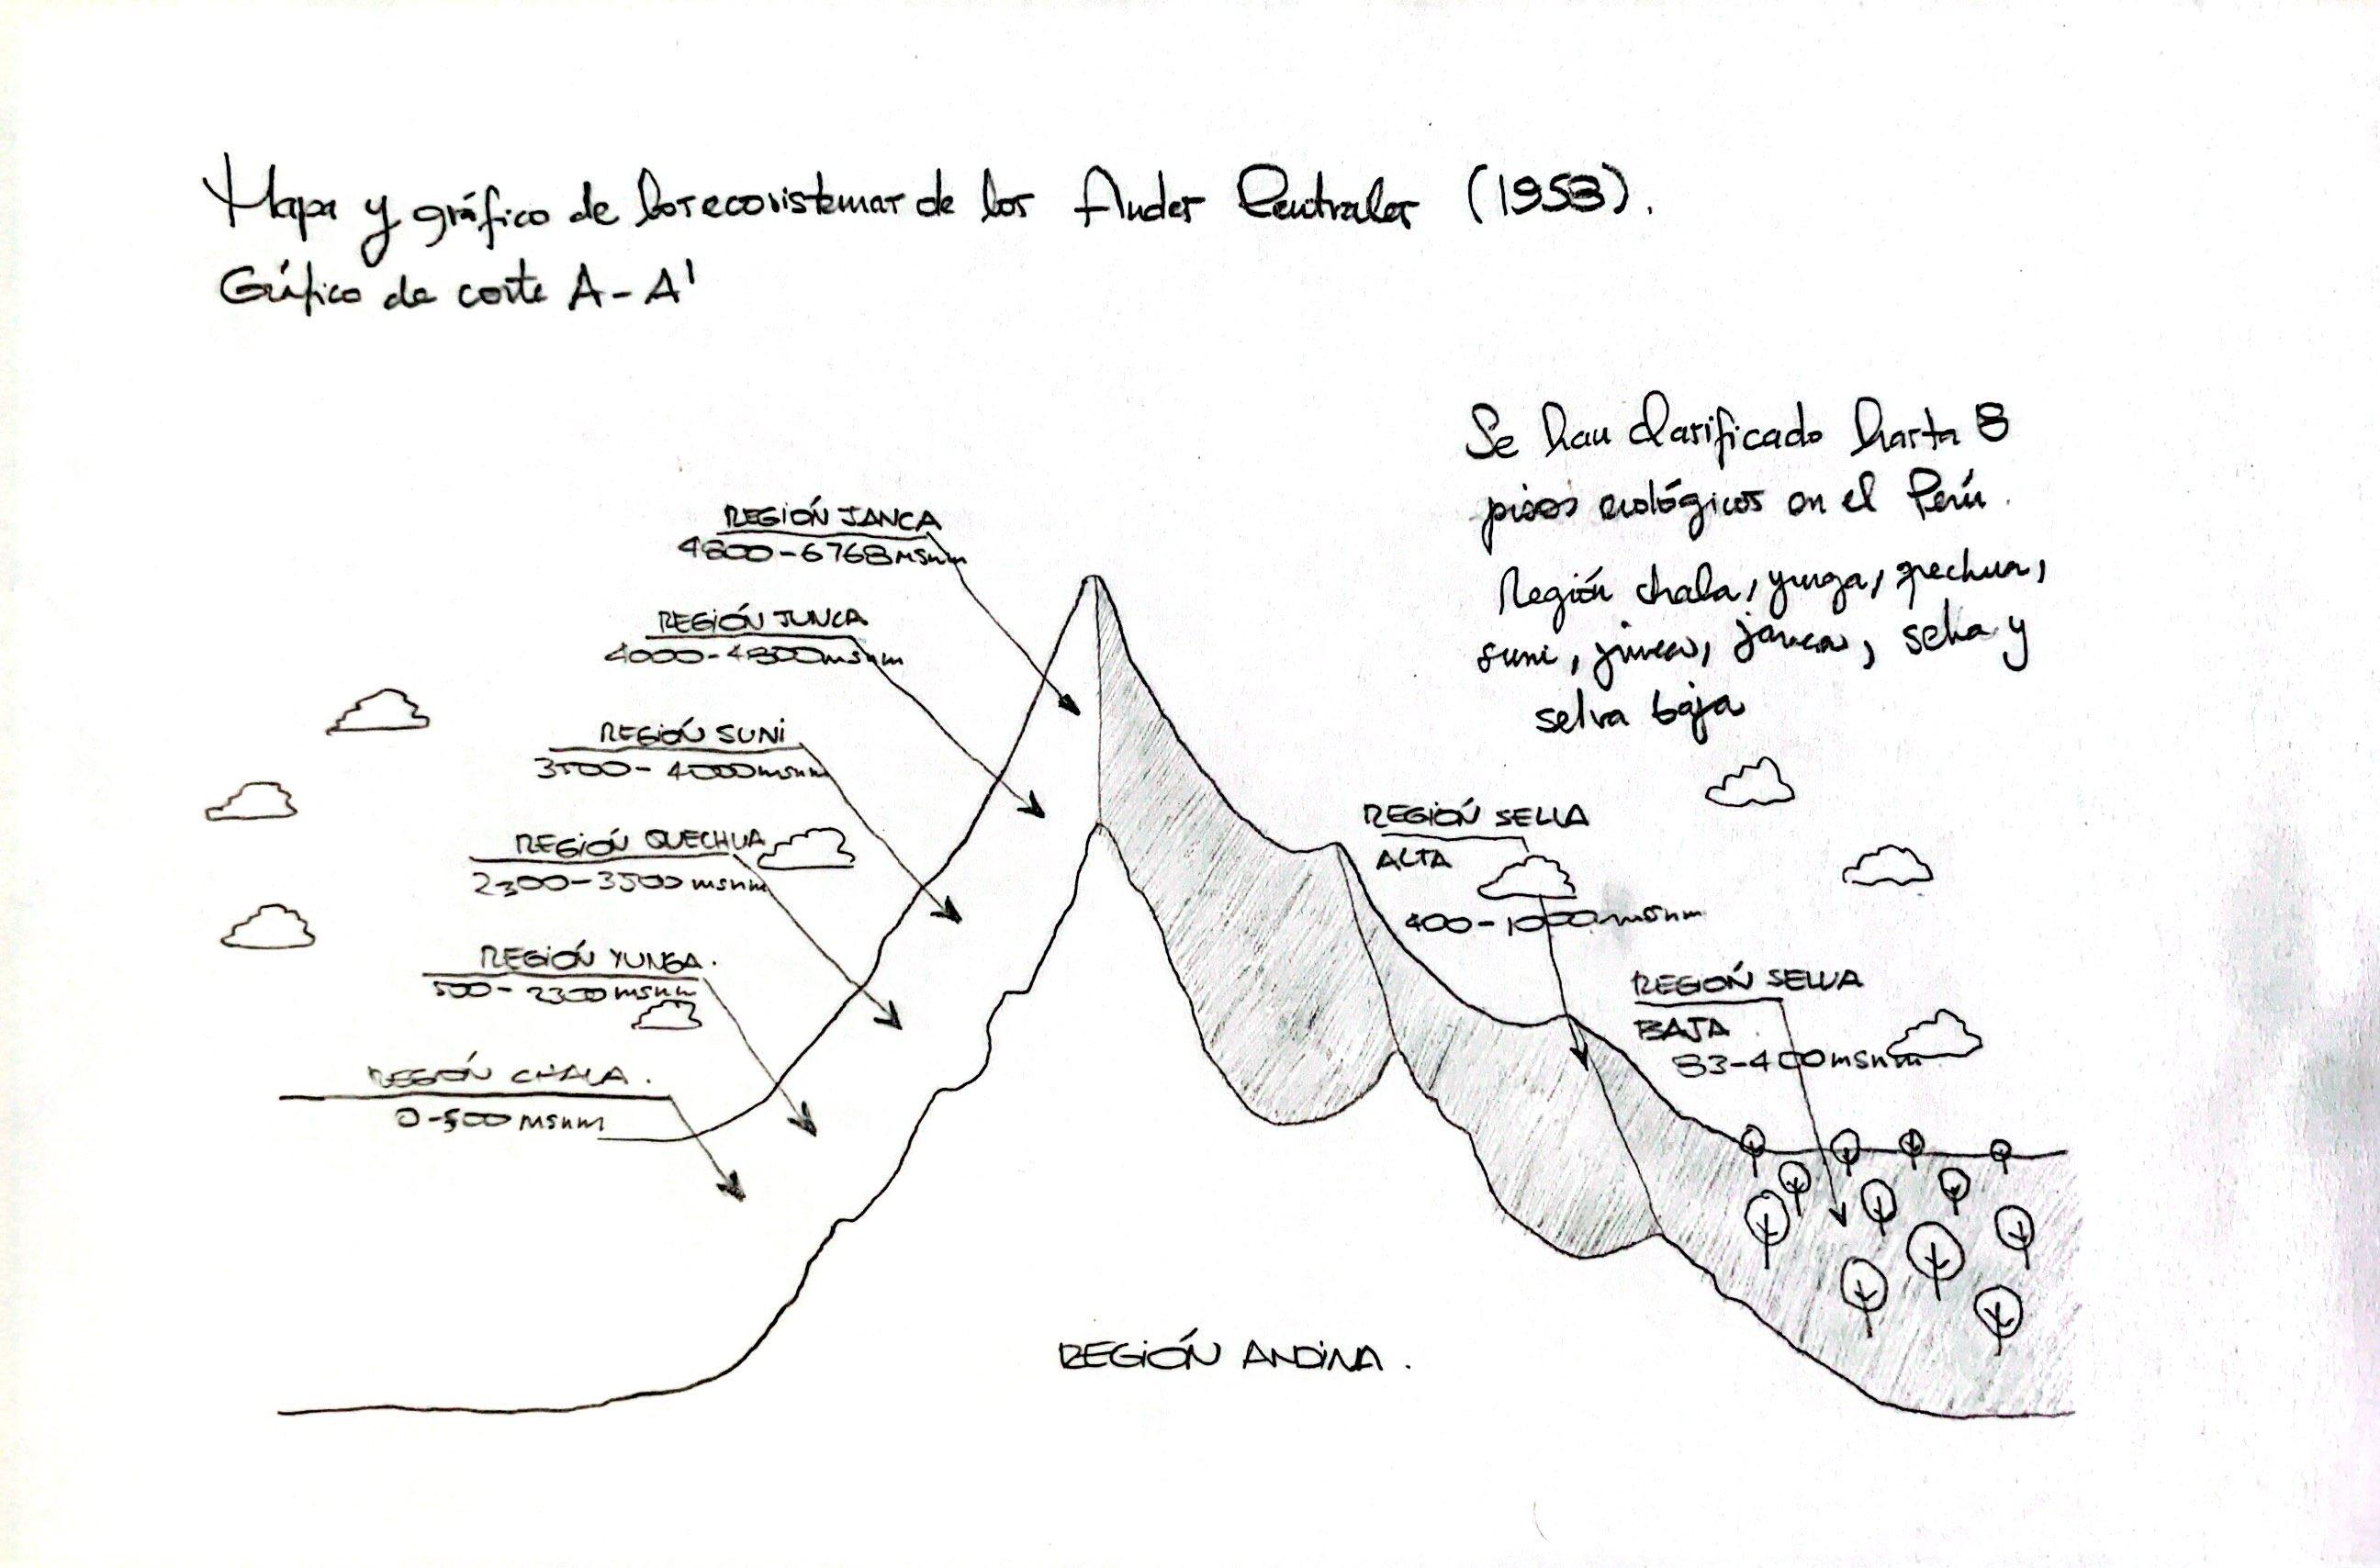 Mapa y gráfico de los ecosistemas de los Andes Centrales (1953).
Gráfico de corte A-A'
Se han clasificado hasta 8
pisos ecológicos en el Perú.
Región chala, yunga, quechua,
suni, junca, janca, selva y
selva baja
REGIÓN JANCA
4800-6768msnm
REGIÓN JUNCA
4000-4800msnm
REGIÓN SUNI
3500-4000msnm
REGIÓN QUECHUA
2300-3500msnm
REGIÓN YUNGA.
500-2300msnm
REGIÓN CHALA.
0-500msnm
REGIÓN SELVA
ALTA
400-1000msnm
REGIÓN SELVA
BAJA
83-400msnm
REGIÓN ANDINA.